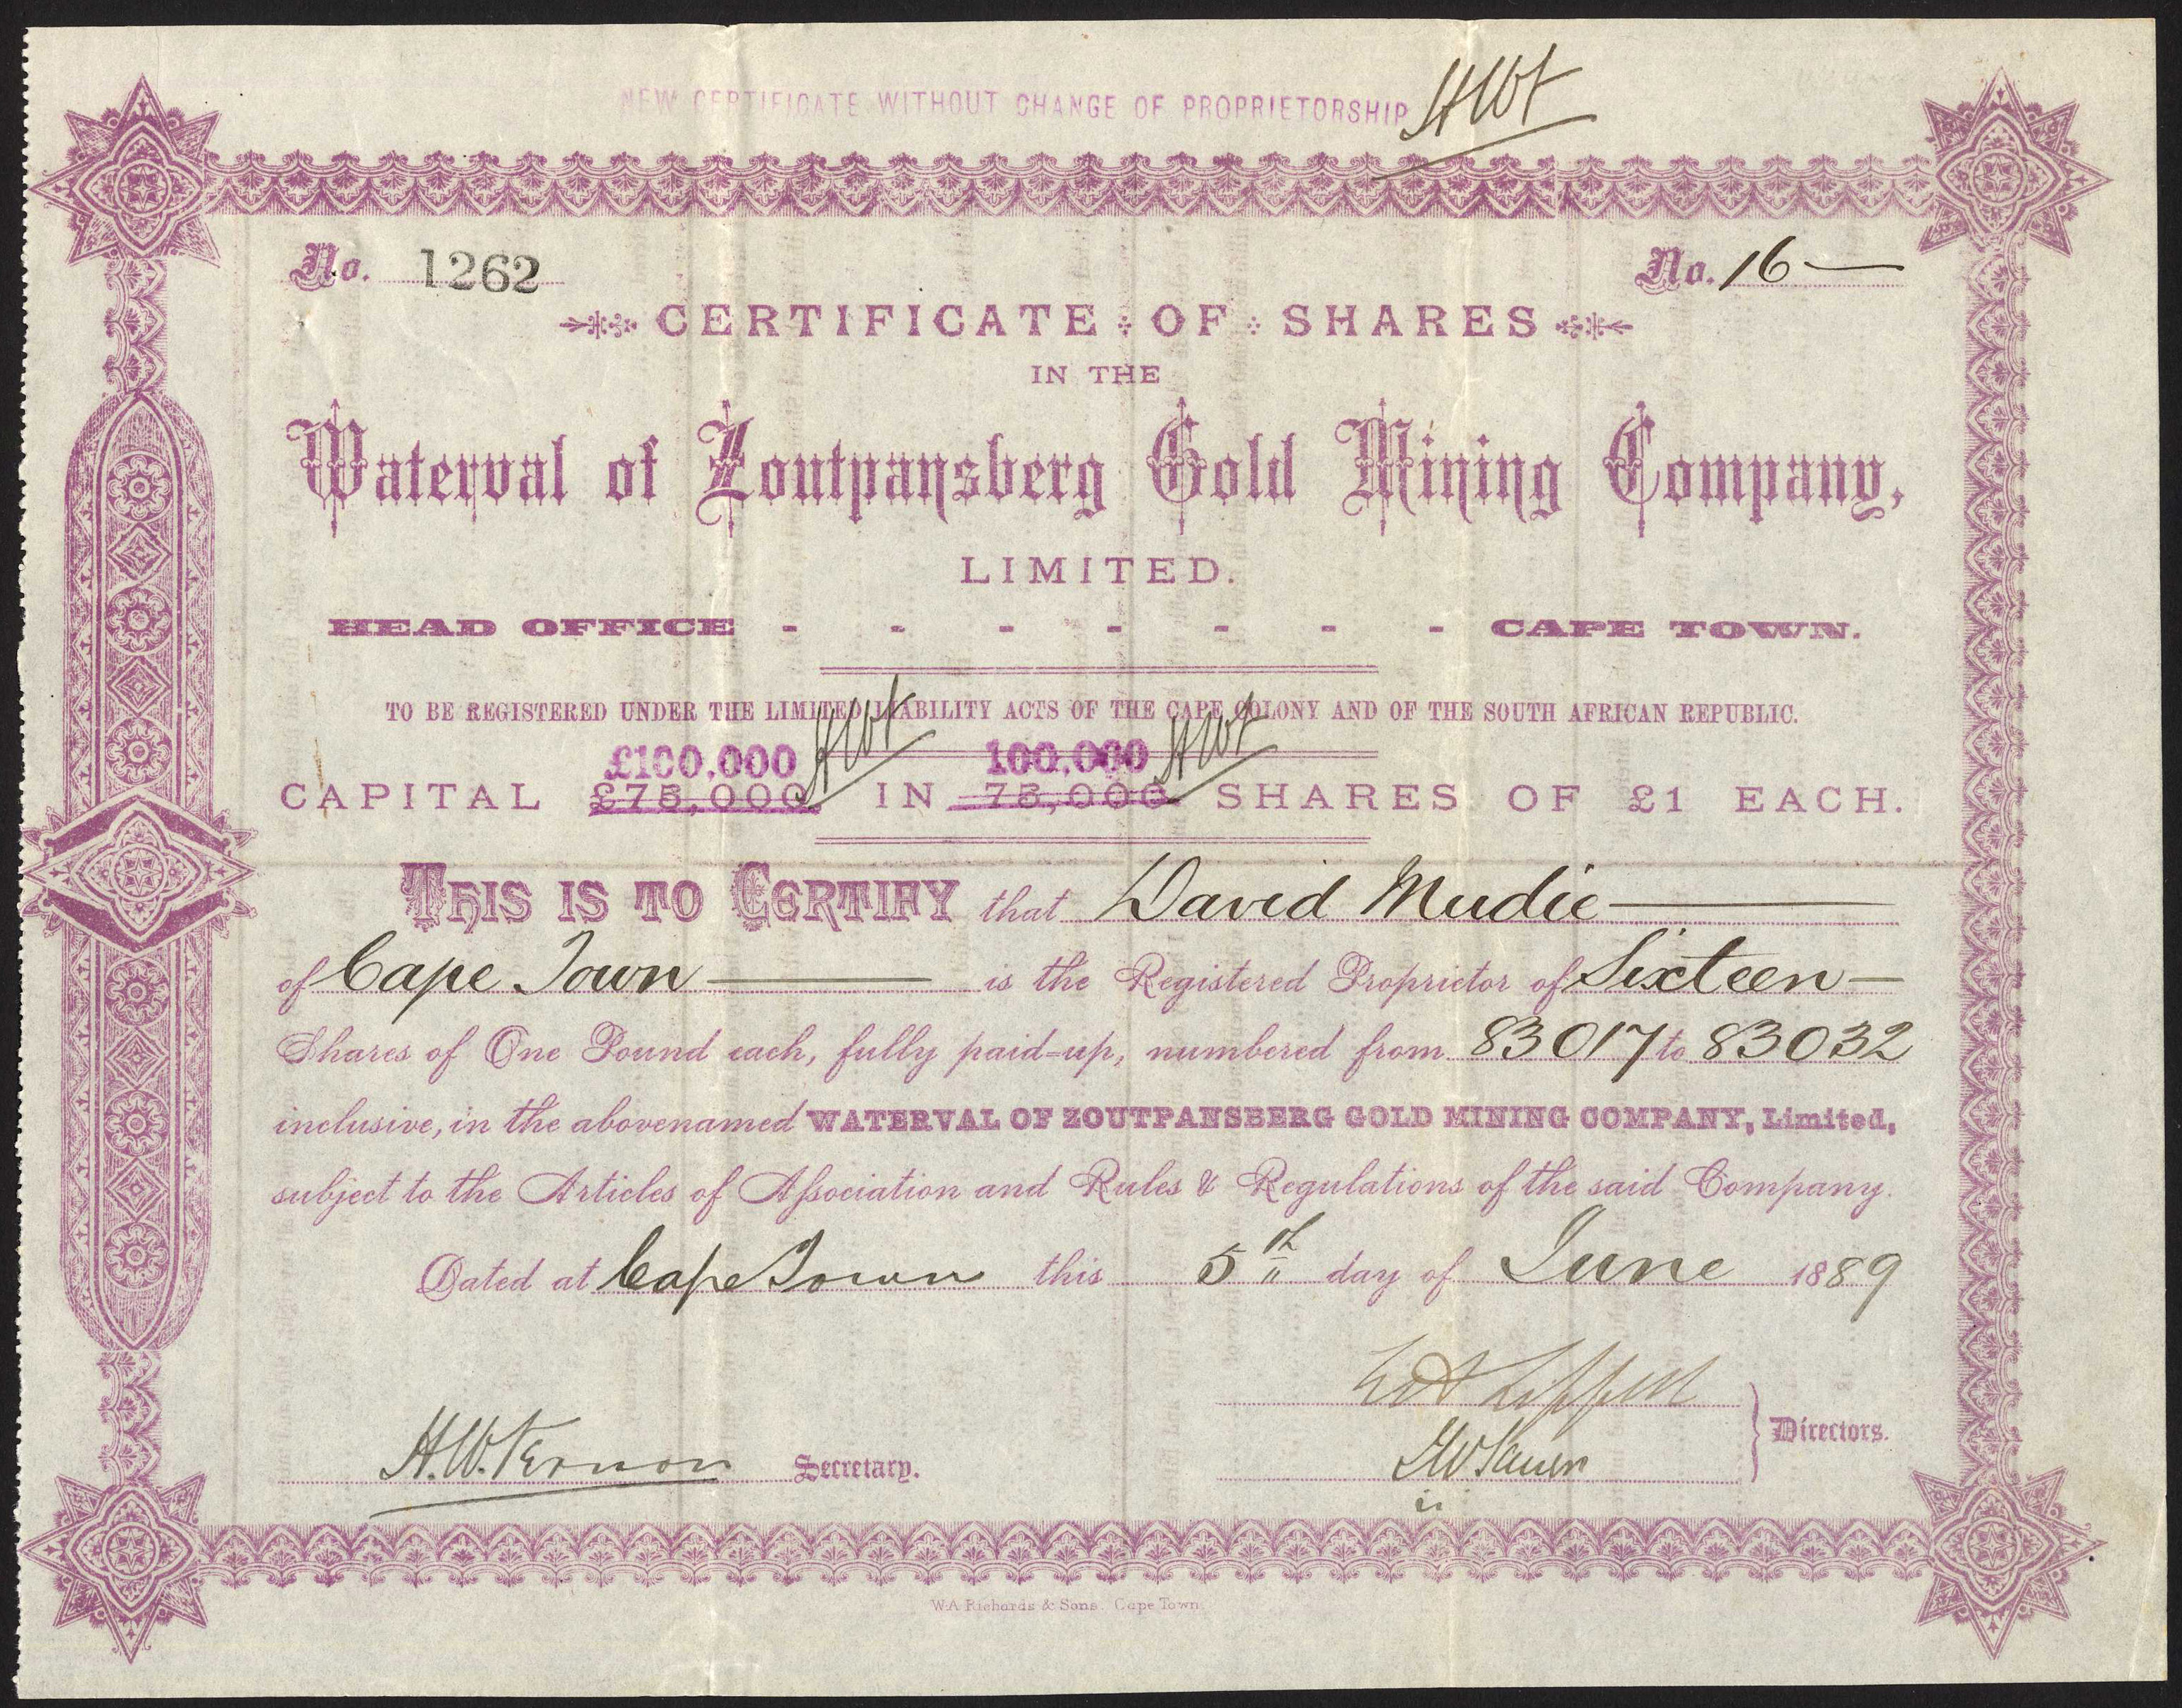 NEW CERTIFICATE WITHOUT CHANGE OF PROPRIETORSHIP HWV
No. 1262 No. 16
CERTIFICATE OF SHARES
IN THE
Waterval of Zoutpansberg Gold Mining Company,
LIMITED.
HEAD OFFICE - - - - - - - CAPE TOWN.
TO BE REGISTERED UNDER THE LIMITED LIABILITY ACTS OF THE CAPE COLONY AND OF THE SOUTH AFRICAN REPUBLIC.
£100,000 HWV 100,000 HWV
CAPITAL £75,000 IN 75,000 SHARES OF £1 EACH.
THIS IS TO CERTIFY that David Mudie
of Cape Town is the Registered Proprietor of Sixteen
Shares of One Pound each, fully paid-up, numbered from 83017 to 83032
inclusive, in the abovenamed WATERVAL OF ZOUTPANSBERG GOLD MINING COMPANY, Limited,
subject to the Articles of Association and Rules & Regulations of the said Company.
Dated at Cape Town this 5th day of June 1889
H.W. Vernon Secretary.
Directors.
W.A. Richards & Sons. Cape Town.